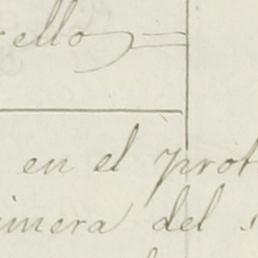 rello
en el prot
imera del